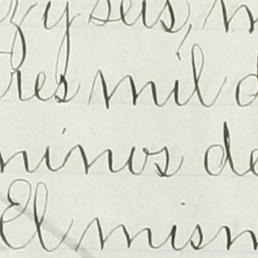 y seis, m
res mil d
minos de
El mism